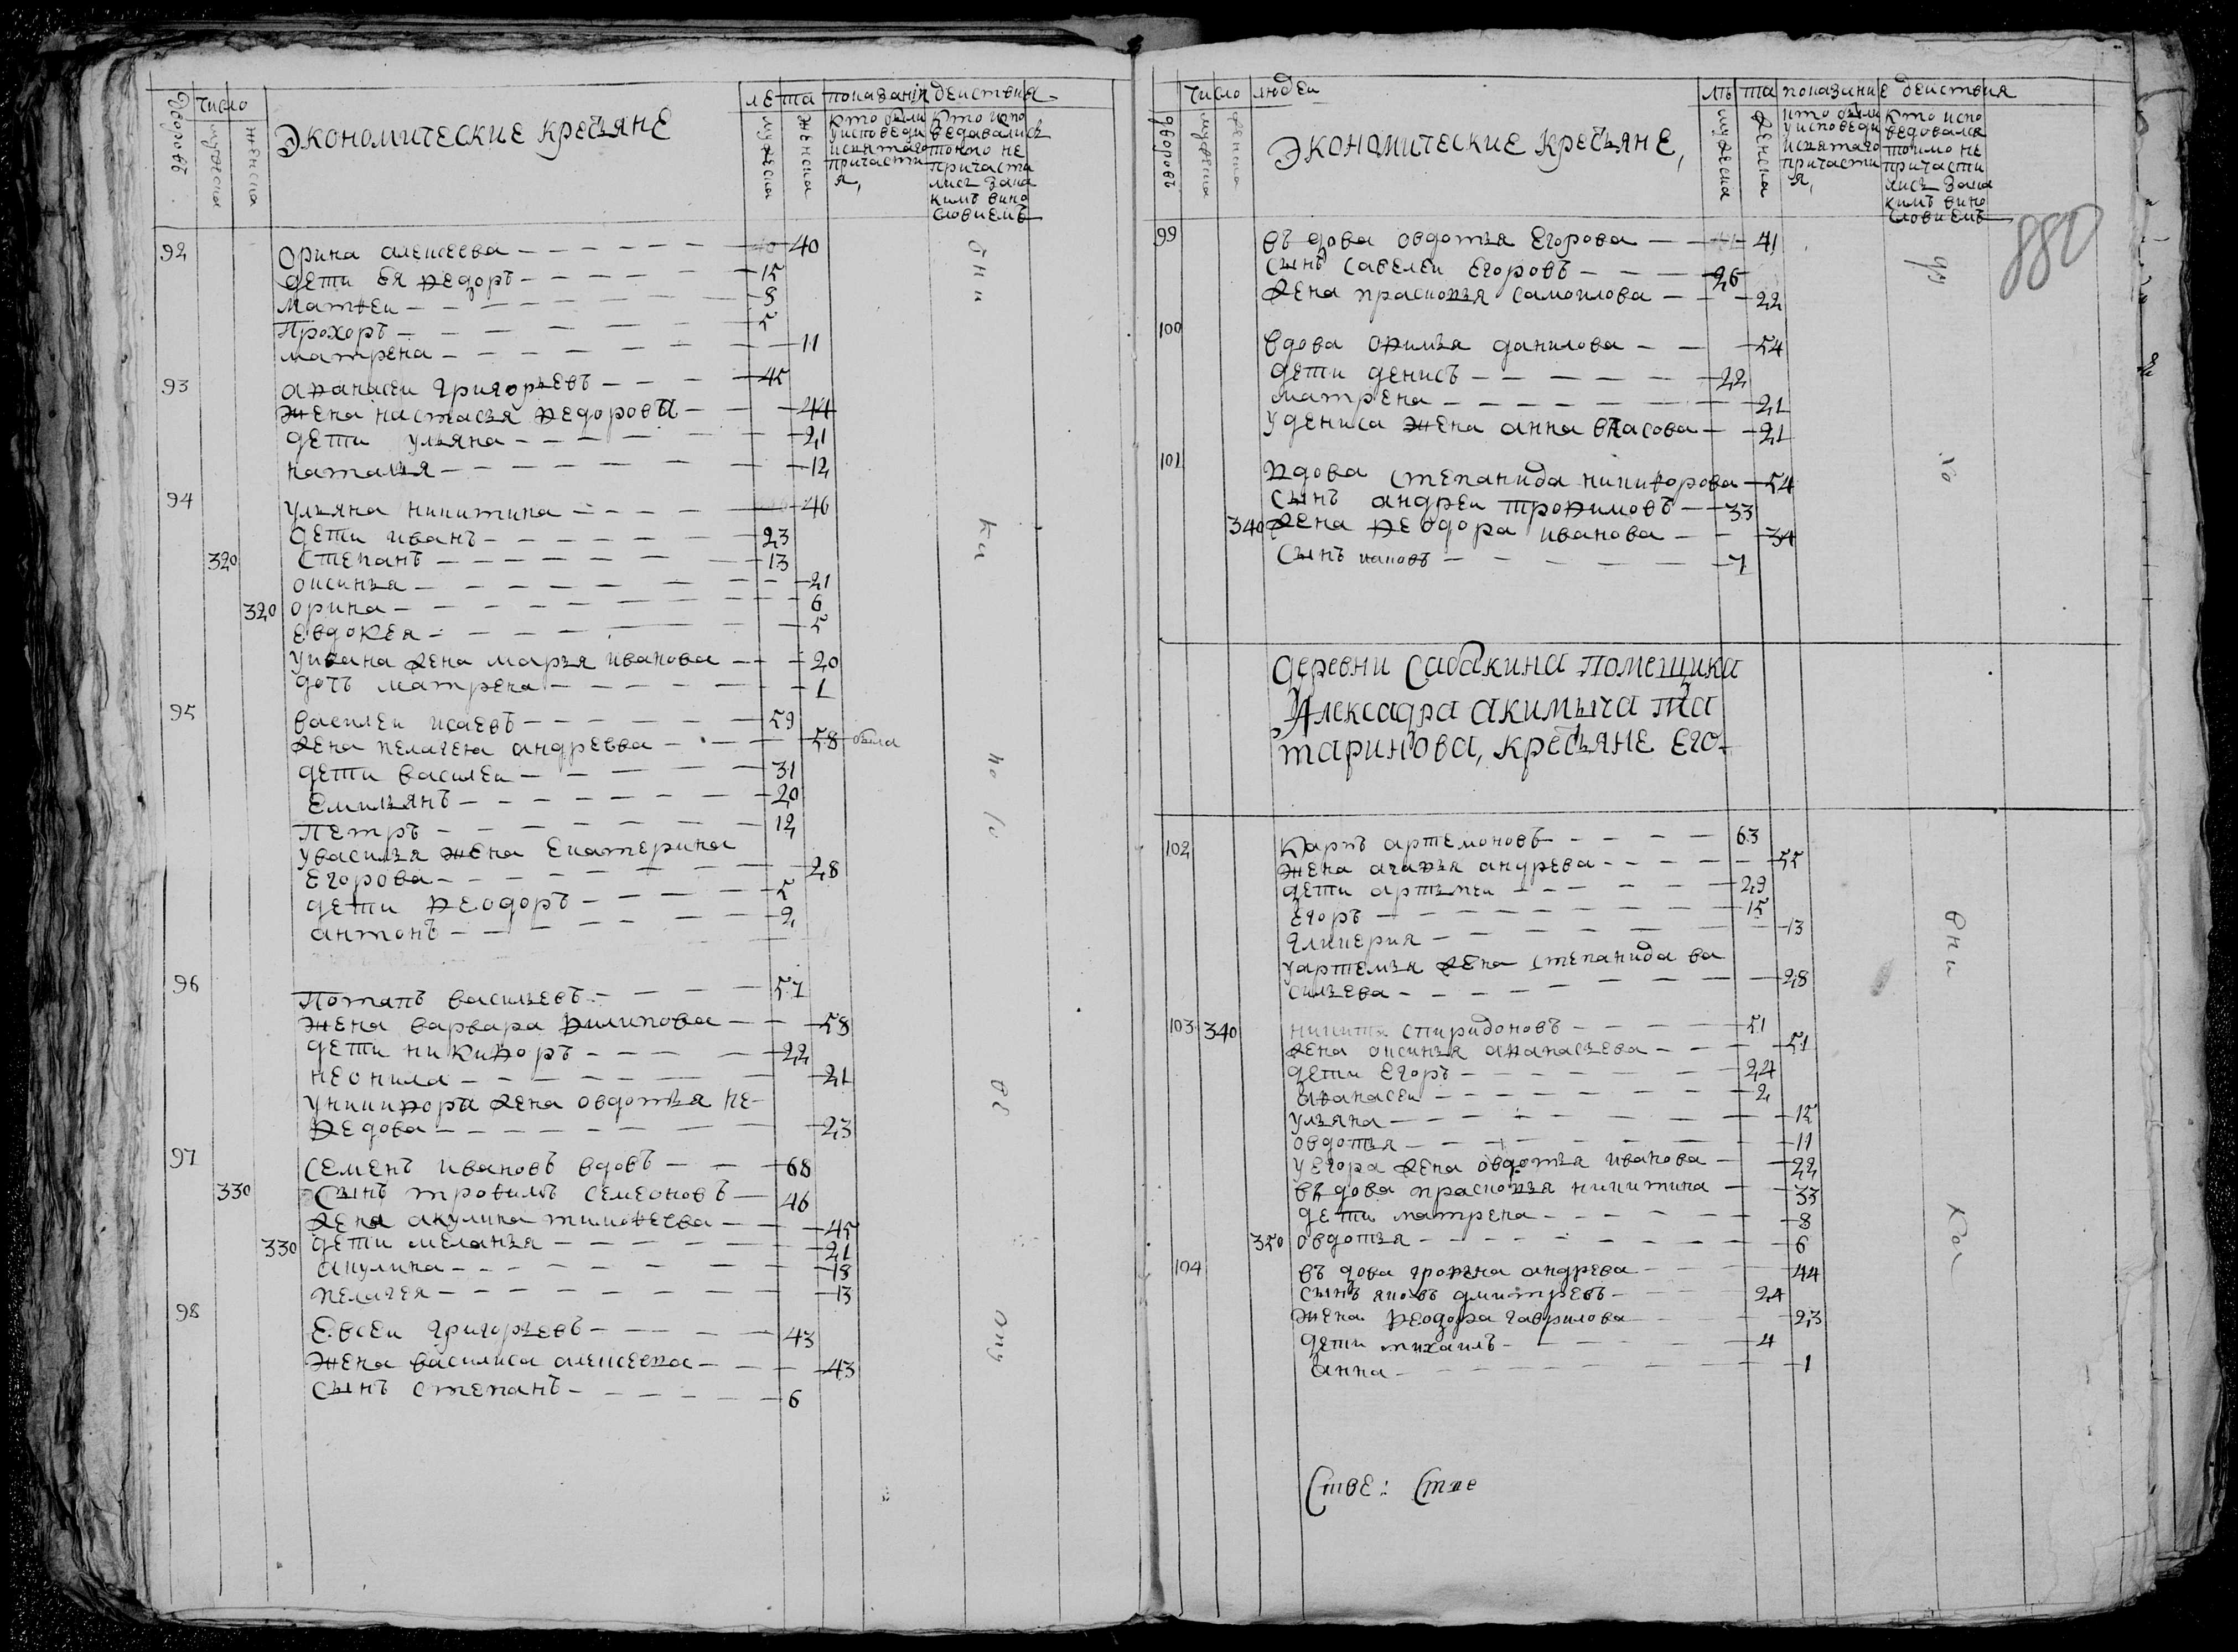 дворовъ
число
мужеска
женска
Экономические крестьяне
лета
мужеска
женска
показания действия
кто были у исповеди и святаго причастия,
кто испо ведавались токмо не причасти лись зана кимъ вино словиемъ
92 Орина алексеева 40
дети Ея Ѳедоръ 15
Матѳеи 8
Прохоръ 5
матрена 11
93 аѲанасеи григорьевъ 45
жена настасья Ѳедорова 44
дети ульяна 21
наталья 12
94 ульяна никитина 46
дети иванъ 23
320 Степанъ 13
оксинья 21
320 орина 6
Евдокея 5
уивана жена марья иванова 20
дочь матрена 1
95 василеи исаевъ 59
жена пелагея андреева 58 была
дети василеи 31
Емильянъ 20
Петръ 12
увасилья жена Екатерина
Егорова 28
дети Ѳеодоръ 5
антонъ 2
96 Потапъ васильевъ 57
жена варвара Ѳилипова 58
дети никиѲоръ 22
неонила 21
уникиѲора жена овдотья не
Ѳедова 23
97 Семенъ ивановъ вдовъ 68
330 Сынъ троѲимъ семеоновъ 46
жена акулина тимоѲеева 45
330 дети меланья 21
акулина 18
пелагея 13
98 Евсеи григорьевъ 43
жена василиса алексеева 43
сынъ степанъ 6
число людеи
дворовъ
мужеска
женска
Экономические крестьяне,
лѣта
мужеска
женска
показание действия
кто были у исповеди и святаго причасти я,
кто испо ведовался токмо не причасти лись зана кимъ вино словиемъ
880
99 въдова овдотья Егорова 41
сынъ савелеи Егоровъ 26
жена прасковья самоилова 22
100 вдова оѲимья данилова 54
дети денисъ 22
матрена 21
удениса жена анна власова 21
101 вдова степанида никиѲорова 54
сынъ андреи троѲимовъ 33
340 жена Ѳеодора иванова 34
сынъ иаковъ 7
деревни Сабакина помещика
Алексадра акимыча та
таринова, крестьяне Его
102 Карпъ артемоновъ 63
жена агаѲья андрева 55
дети артемеи 29
Егоръ 15
гликерия 13
уартемья жена степанида ва
сильева 28
103 340 никита спиридоновъ 51
жена оксинья аѲанасьева 51
дети Егоръ 24
аѲанасеи 2
ульяна 15
овдотья 11
уЕгора жена овдотья иванова 22
въдова прасковья никитина 33
дети матрена 8
350 овдотья 6
104 въдова гроѲена андрева 44
сынъ яковъ дмитревъ 24
жена Ѳеодора гаврилова 23
дети михаилъ 4
анна 1